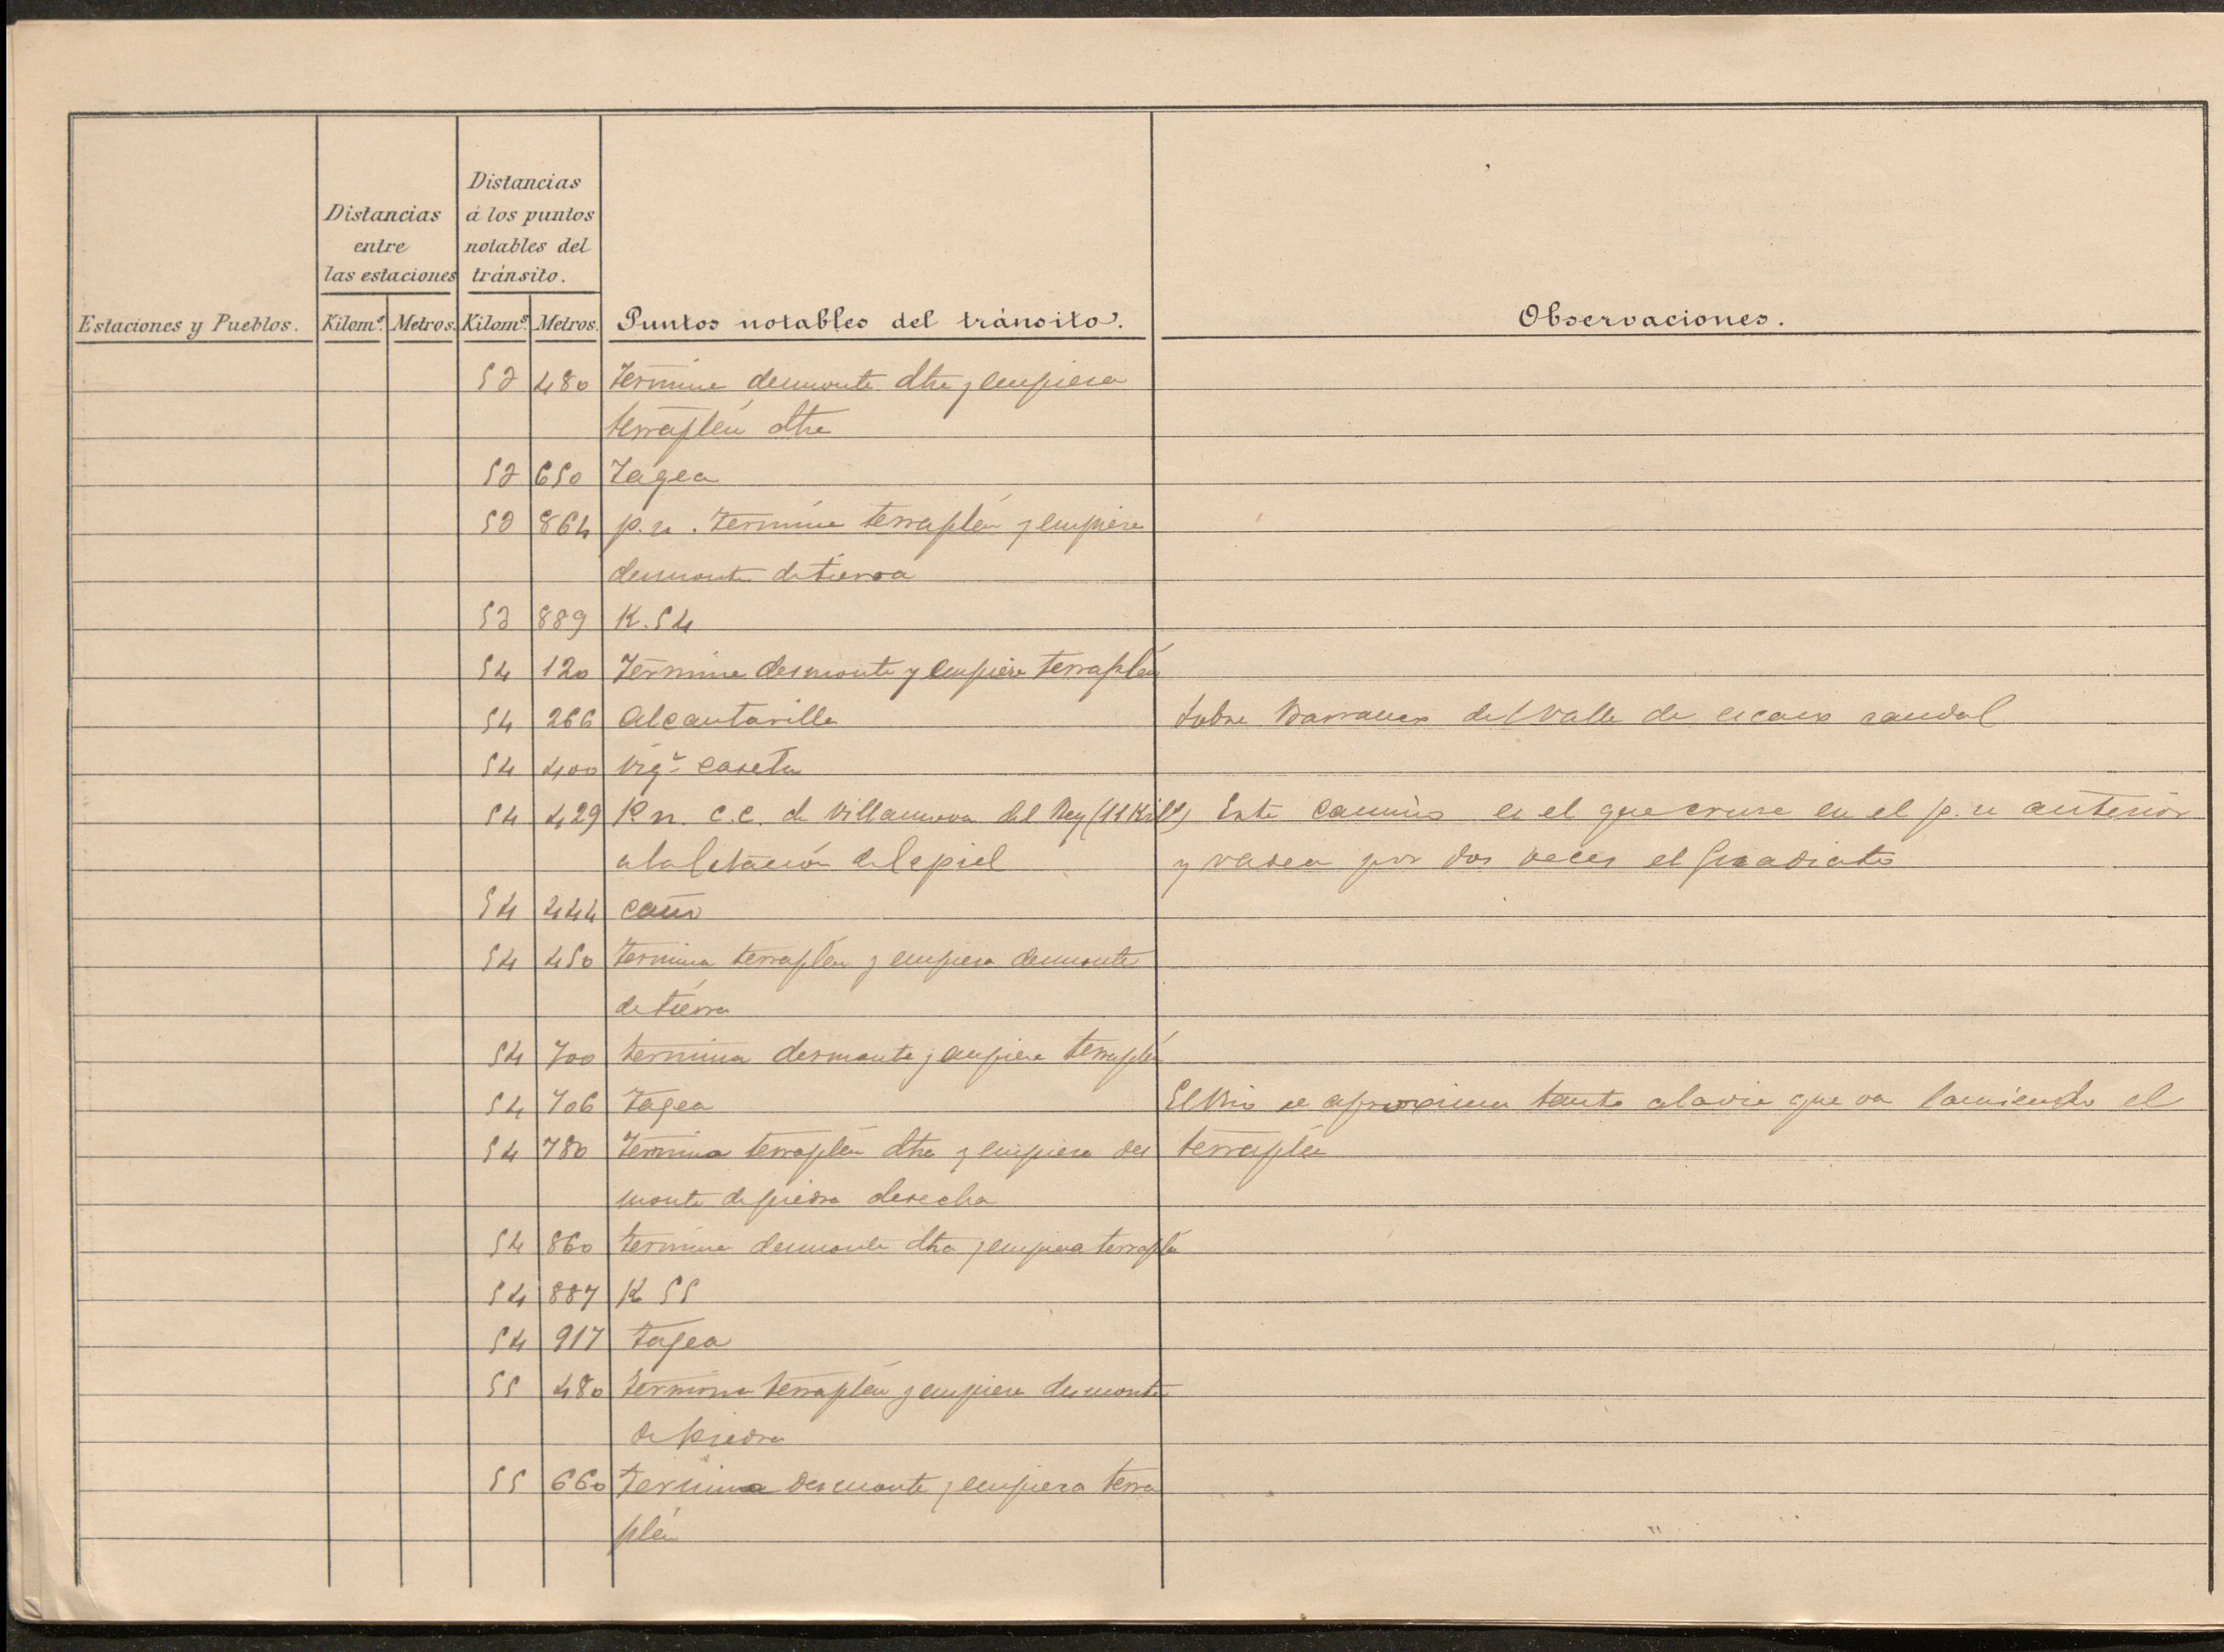 Distancias
Distancias á los puntos
entre notables del
las estaciones tránsito.
Estaciones y Pueblos. Kilom.s Metros. Kilom.s Metros. Puntos notables del tránsito. Observaciones.
53 480 Termina desmonte dha y empieza
terraplén dha
53 650 Tagea
53 864 p.n. Termina terraplén y empieza
desmonte de tierra
53 889 K. 54
54 120 Termina desmonte y empieza terraplén
54 266 Alcantarilla Sobre Barranco del Valle de escaso caudal
54 400 Vig.ª Caseta
54 429 P.n. C.C. de Villanueva del Rey (11 Kil.s) Este camino es el que cruza en el p.n anterior
a la Estación del epiel y vadea por dos veces el Guadiato
54 444 Caño
54 450 termina terraplén y empieza desmonte
de tierra
54 700 termina desmonte y empieza terraplén
54 706 Tagea El Rio se aproxima tanto a la via que va lamiendo el
54 780 Termina terraplén dha y empieza des terraplén
monte de piedra derecha
54 860 termina desmonte dha y empieza terraplén
54 887 K 55
54 917 tagea
55 480 termina terraplén y empieza desmonte
de piedra
55 660 Termina desmonte y empieza terra
plén